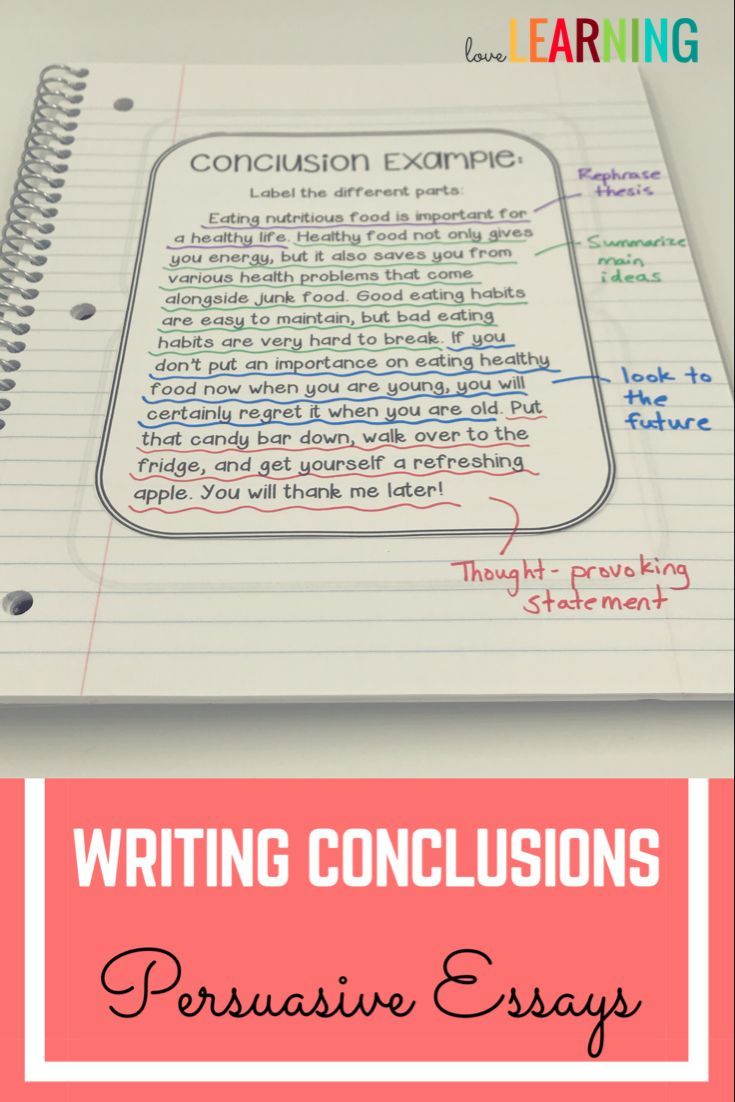 love LEARNING
Conclusion Example:
Label the different parts:
Eating nutritious food is important for
a healthy life. Healthy food not only gives
you energy, but it also saves you from
various health problems that come
alongside junk food. Good eating habits
are easy to maintain, but bad eating
habits are very hard to break. If you
don't put an importance on eating healthy
food now when you are young, you will
certainly regret it when you are old. Put
that candy bar down, walk over to the
fridge, and get yourself a refreshing
apple. You will thank me later!
Rephrase
thesis
Summarize
main
ideas
look to
the
future
Thought-provoking
statement
WRITING CONCLUSIONS
Persuasive Essays